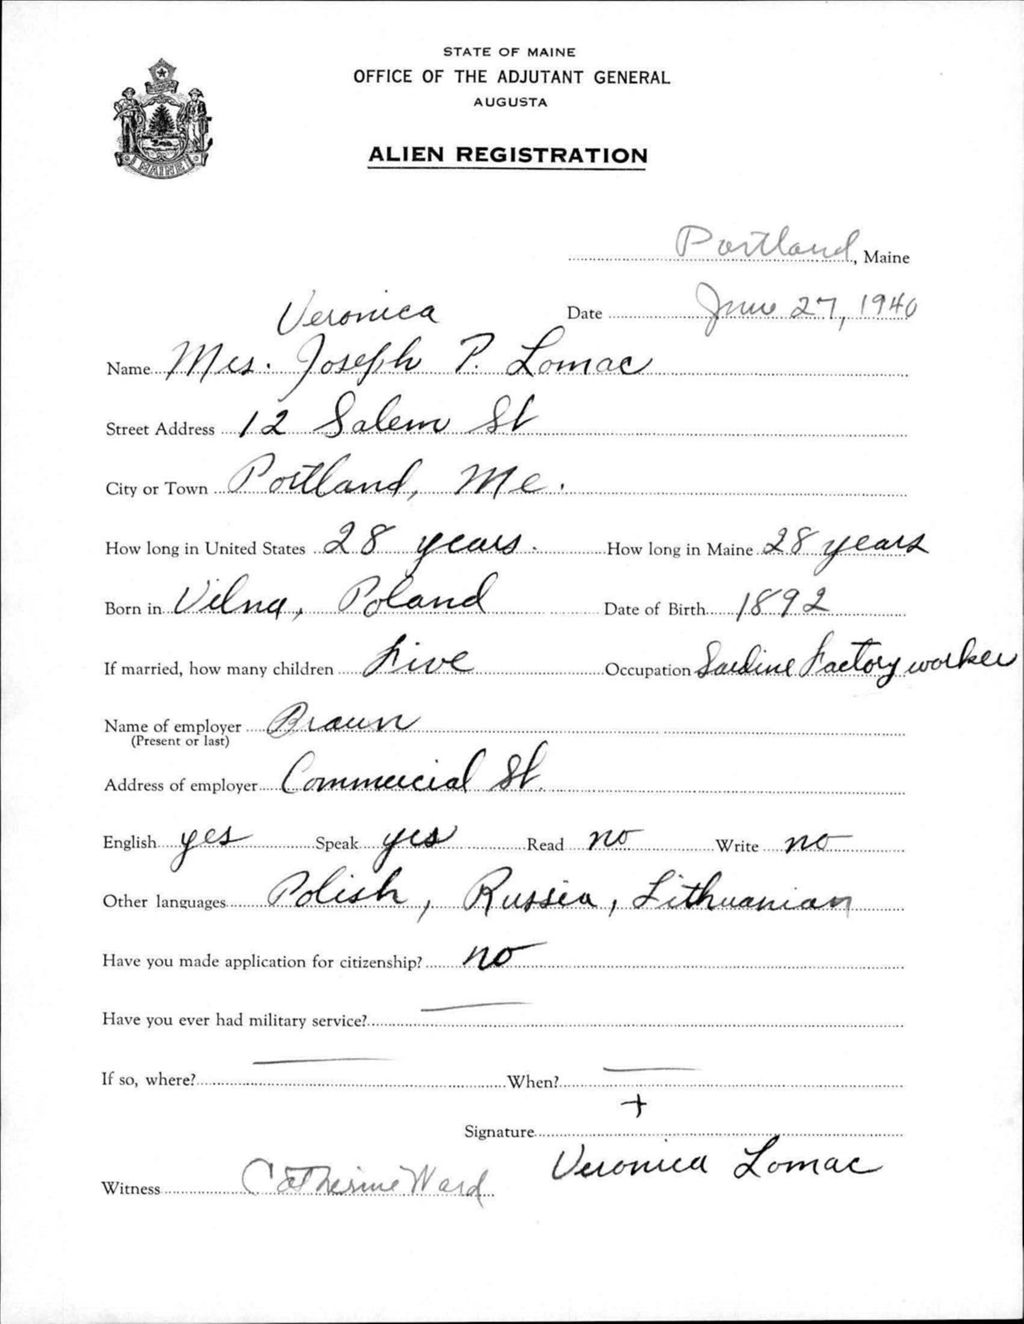 STATE OF MAINE
OFFICE OF THE ADJUTANT GENERAL
AUGUSTA
MAINE
ALIEN REGISTRATION
Portland, Maine
Date June 27, 1940
Veronica
Name Mrs. Joseph P. Lomac
Street Address 12 Salem St
City or Town Portland, Me.
How long in United States 28 years. How long in Maine 28 years
Born in Vilna, Poland Date of Birth 1892
If married, how many children Five Occupation Sardine Factory worker
Name of employer Braun
(Present or last)
Address of employer Commercial St.
English yes Speak yes Read no Write no
Other languages Polish, Russia, Lithuanian
Have you made application for citizenship? no
Have you ever had military service? —
If so, where? — When? —
+
Signature
Veronica Lomac
Witness Catherine Ward